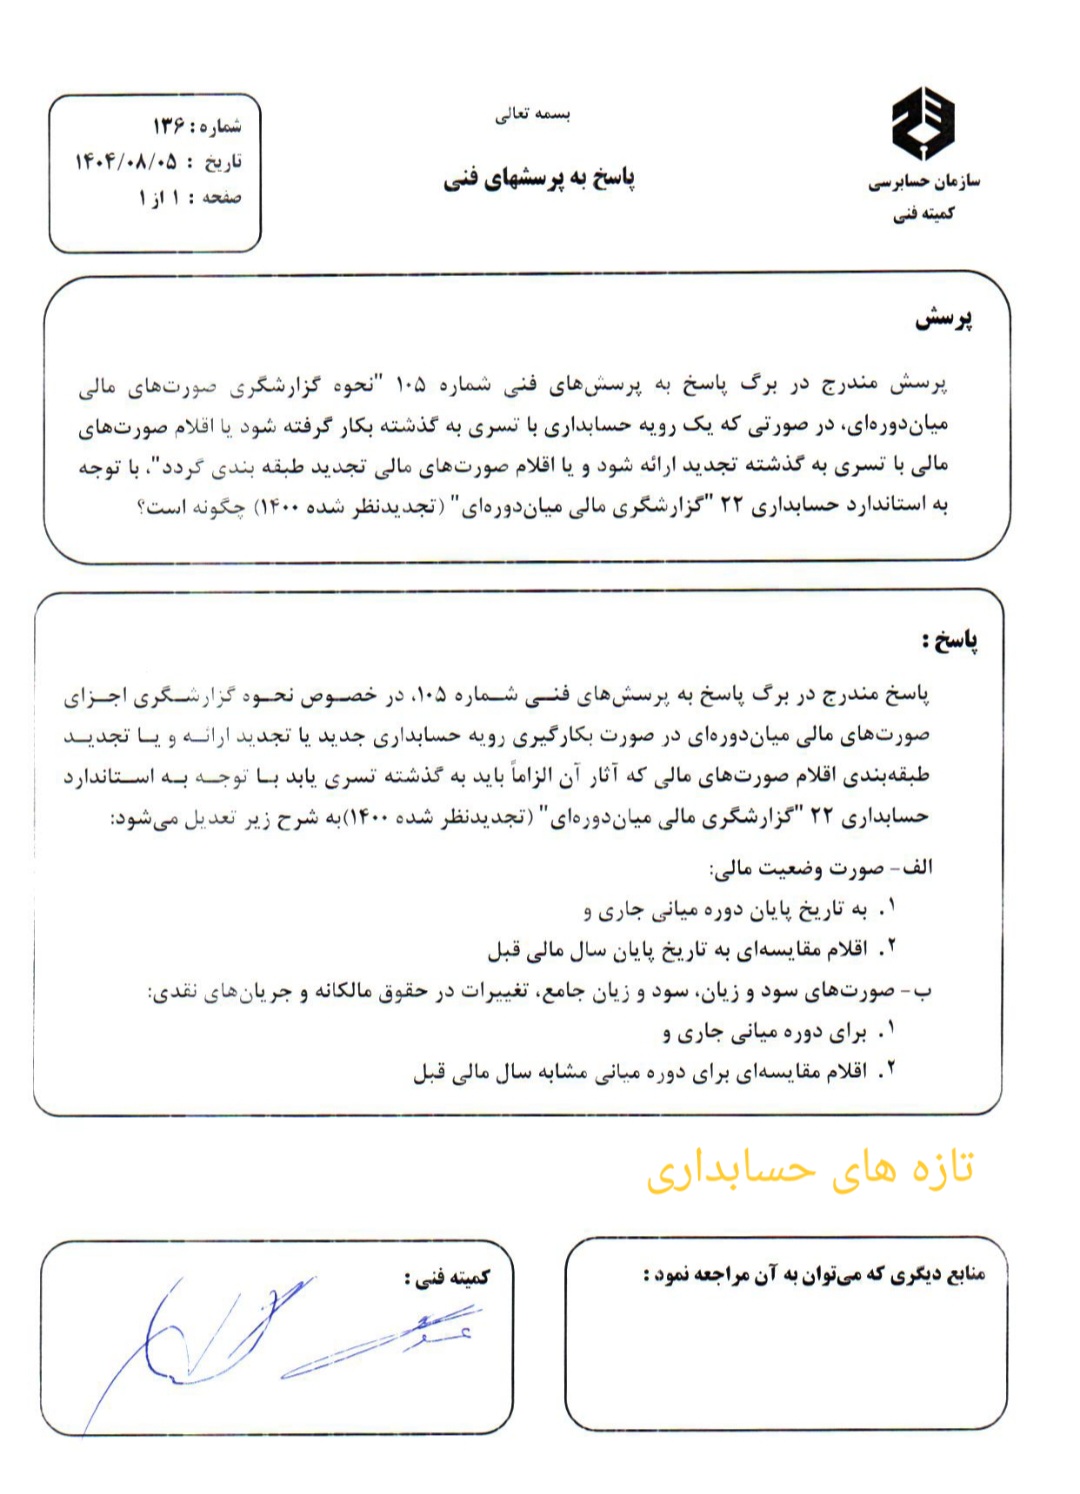 بسمه تعالی
پاسخ به پرسشهای فنی
سازمان حسابرسی
کمیته فنی
شماره : ۱۳۶
تاریخ : ۱۴۰۴/۰۸/۰۵
صفحه : ۱ از ۱
پرسش
پرسش مندرج در برگ پاسخ به پرسش‌های فنی شماره ۱۰۵ "نحوه گزارشگری صورت‌های مالی
میان‌دوره‌ای، در صورتی که یک رویه حسابداری با تسری به گذشته بکار گرفته شود یا اقلام صورت‌های
مالی با تسری به گذشته تجدید ارائه شود و یا اقلام صورت‌های مالی تجدید طبقه بندی گردد"، با توجه
به استاندارد حسابداری ۲۲ "گزارشگری مالی میان‌دوره‌ای" (تجدیدنظر شده ۱۴۰۰) چگونه است؟
پاسخ :
پاسخ مندرج در برگ پاسخ به پرسش‌های فنی شماره ۱۰۵، در خصوص نحوه گزارشگری اجزای
صورت‌های مالی میان‌دوره‌ای در صورت بکارگیری رویه حسابداری جدید یا تجدید ارائه و یا تجدید
طبقه‌بندی اقلام صورت‌های مالی که آثار آن الزاماً باید به گذشته تسری یابد با توجه به استاندارد
حسابداری ۲۲ "گزارشگری مالی میان‌دوره‌ای" (تجدیدنظر شده ۱۴۰۰)به شرح زیر تعدیل می‌شود:
الف- صورت وضعیت مالی:
۱. به تاریخ پایان دوره میانی جاری و
۲. اقلام مقایسه‌ای به تاریخ پایان سال مالی قبل
ب- صورت‌های سود و زیان، سود و زیان جامع، تغییرات در حقوق مالکانه و جریان‌های نقدی:
۱. برای دوره میانی جاری و
۲. اقلام مقایسه‌ای برای دوره میانی مشابه سال مالی قبل
تازه های حسابداری
منابع دیگری که می‌توان به آن مراجعه نمود :
کمیته فنی :